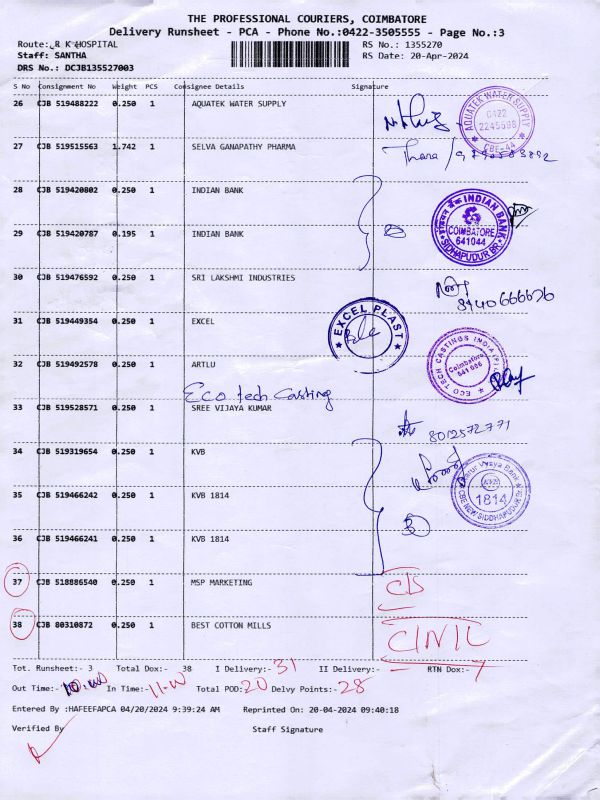 THE PROFESSIONAL COURIERS, COIMBATORE
Delivery Runsheet - PCA - Phone No.:0422-3505555 - Page No.:3
Route: R K HOSPITAL RS No.: 1355270
Staff: SANTHA RS Date: 20-Apr-2024
DRS No.: DCJB135527003
S No Consignment No Weight PCS Consignee Details Signature
26 CJB 519488222 0.250 1 AQUATEK WATER SUPPLY
AQUATEK WATER SUPPLY 0422 2245508 CBE-44
27 CJB 519515563 1.742 1 SELVA GANAPATHY PHARMA
Thara
28 CJB 519420802 0.250 1 INDIAN BANK
इंडियन बैंक INDIAN BANK COIMBATORE 641044 SIDHAPUDUR BR.
29 CJB 519420787 0.195 1 INDIAN BANK
30 CJB 519476592 0.250 1 SRI LAKSHMI INDUSTRIES
31 CJB 519449354 0.250 1 EXCEL
EXCEL PLAST
32 CJB 519492578 0.250 1 ARTLU
ECO TECH CASTINGS INDIA (P) Coimbatore
Eco tech Casting
33 CJB 519528571 0.250 1 SREE VIJAYA KUMAR
8012572771
34 CJB 519319654 0.250 1 KVB
Karur Vysya Bank KVB 1814 CBE NEW SIDDHAPUDUR BR
35 CJB 519466242 0.250 1 KVB 1814
36 CJB 519466241 0.250 1 KVB 1814
37 CJB 518886540 0.250 1 MSP MARKETING
C/S
38 CJB 80310872 0.250 1 BEST COTTON MILLS
Tot. Runsheet:- 3 Total Dox:- 38 I Delivery:- 31 II Delivery:- RTN Dox:- 7
Out Time:- 10.00 In Time:- 11-00 Total POD: 20 Delvy Points:- 28
Entered By :HAFEEFAPCA 04/20/2024 9:39:24 AM Reprinted On: 20-04-2024 09:40:18
Verified By Staff Signature